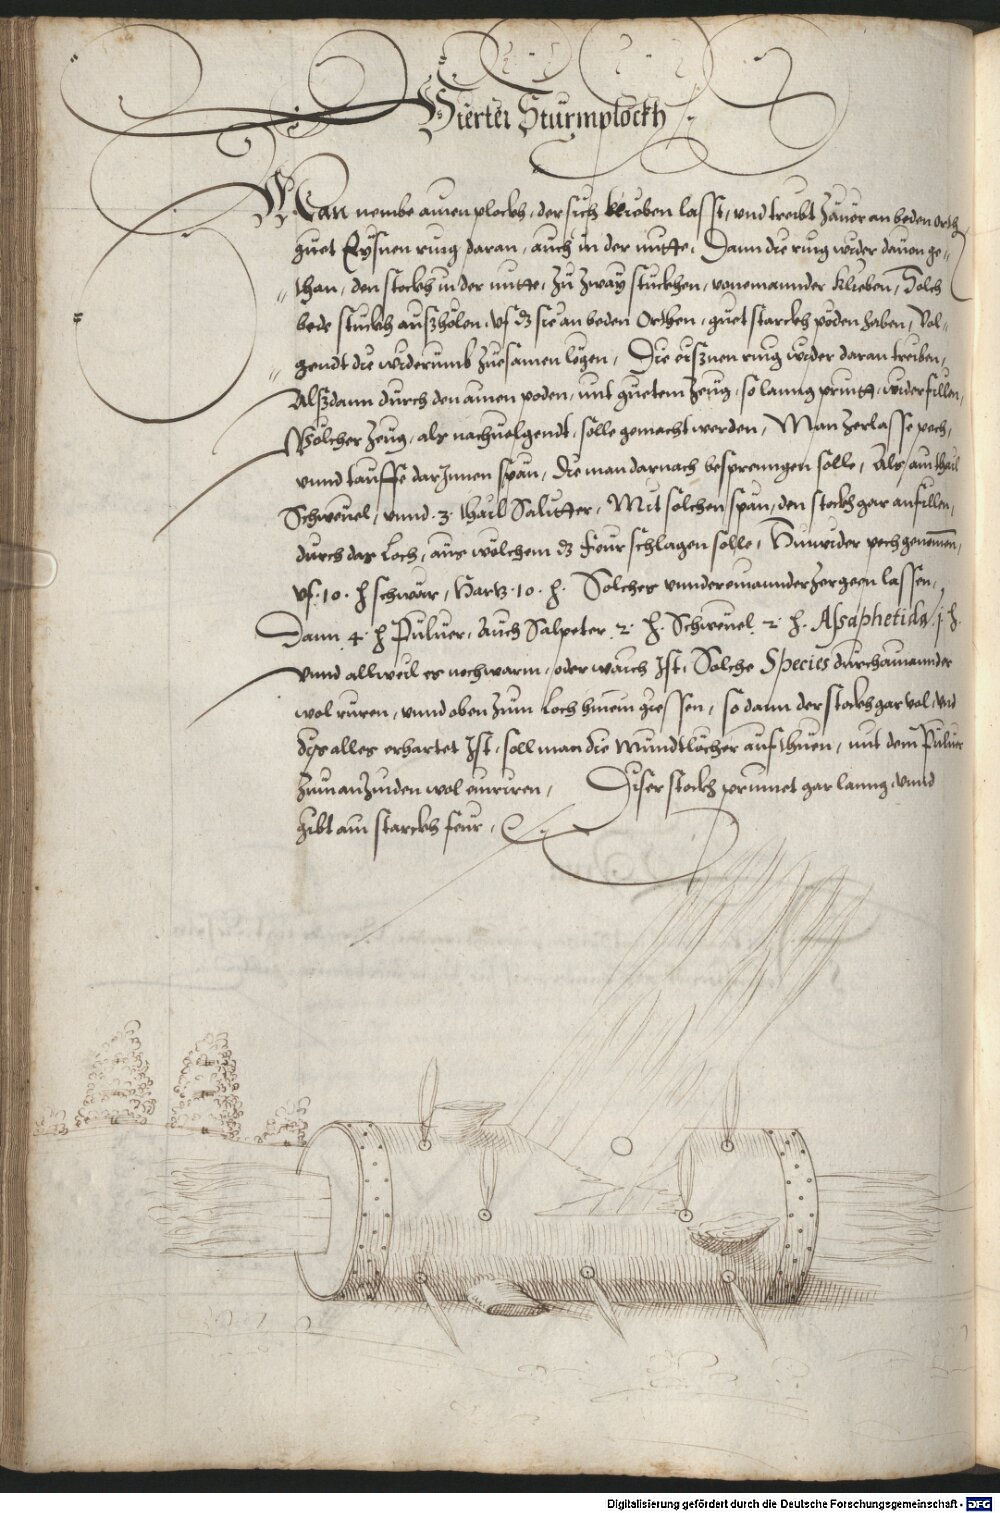 Vierter Sturmplockh
Man nembe ainen plockh, der sich klieben lasst, vnd treibt zuuor an beden orth
guet Eysnen ring daran, auch in der mitte, Dann die ring wider dauon ge-
than, den stockh in der mitte, zu zway stuckhen, vonainannder klieben, Solch
bede stuckh auszhölen, vf dz sie an beden Orthen, guet starckh pöden haben, Vol-
gendt die widerumb zuesamen legen, Die eisznen ring wider daran treiben,
Alszdann durch den ainen poden, mit guetem zeug, so lanng print, wider fillen,
Wölcher zeug, als nachuolgendt, solle gemacht werden, Man zerlasse pech,
vnnd tauffe darinnen span, die man darnach besprenngen solle, Als ain thail
Schweuel, vnnd .3. thail Saliter, Mit solchen span, den stockh gar anfillen,
durch das Loch, aus wölchem dz feur schlagen solle, Hinwider pech genomen,
vf .10. ℔ schwär, Hartz .10. ℔. Solches vnndereinannder zergeen lassen,
Dann 4 ℔ Puluer, Auch Salpeter 2 ℔. Schweuel 2 ℔. Asaphetida j ℔.
vnnd allweil es noch warm, oder waich ist, Solche Species durchainannder
wol ruren, vnnd oben zum Loch hinein giessen, so dann der stockh gar vol, vnd
diss alles erhartet ist, soll man die Mundtlöcher aufthuen, mit dem Puluer
zum anzinden wol einriren, Diser stockh prinnet gar lanng, vnnd
gibt ain starckh feur,
Digitalisierung gefördert durch die Deutsche Forschungsgemeinschaft - DFG